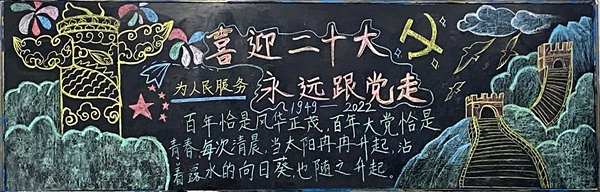 喜迎二十大
为人民服务
永远跟党走
1949—2022
百年恰是风华正茂,百年大党恰是
青春,每次清晨,当太阳冉冉升起,沾
着露水的向日葵,也随之升起。